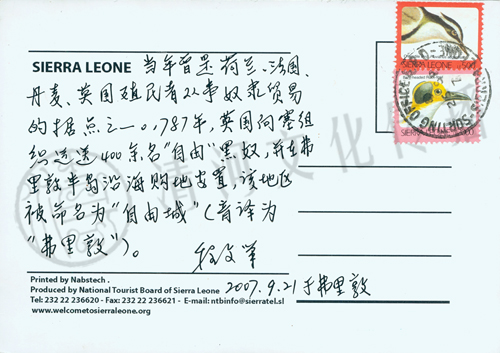 SIERRA LEONE
当年曾是荷兰、法国、
丹麦、英国殖民者从事奴隶贸易
的据点之一。1787年，英国向塞组
织运送400余名“自由”黑奴，并在弗
里敦半岛沿海购地安置，该地区
被命名为“自由城”（音译为
“弗里敦”）。
2007.9.21于弗里敦
Printed by Nabstech.
Produced by National Tourist Board of Sierra Leone
Tel: 232 22 236620 - Fax: 232 22 236621 - E-mail: ntbinfo@sierratel.sl
www.welcometosierraleone.org
SIERRA LEONE